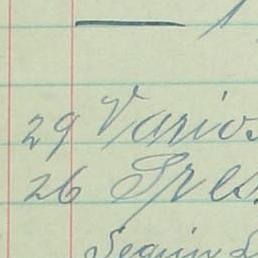 29 Varios
26 Sres
Seguin